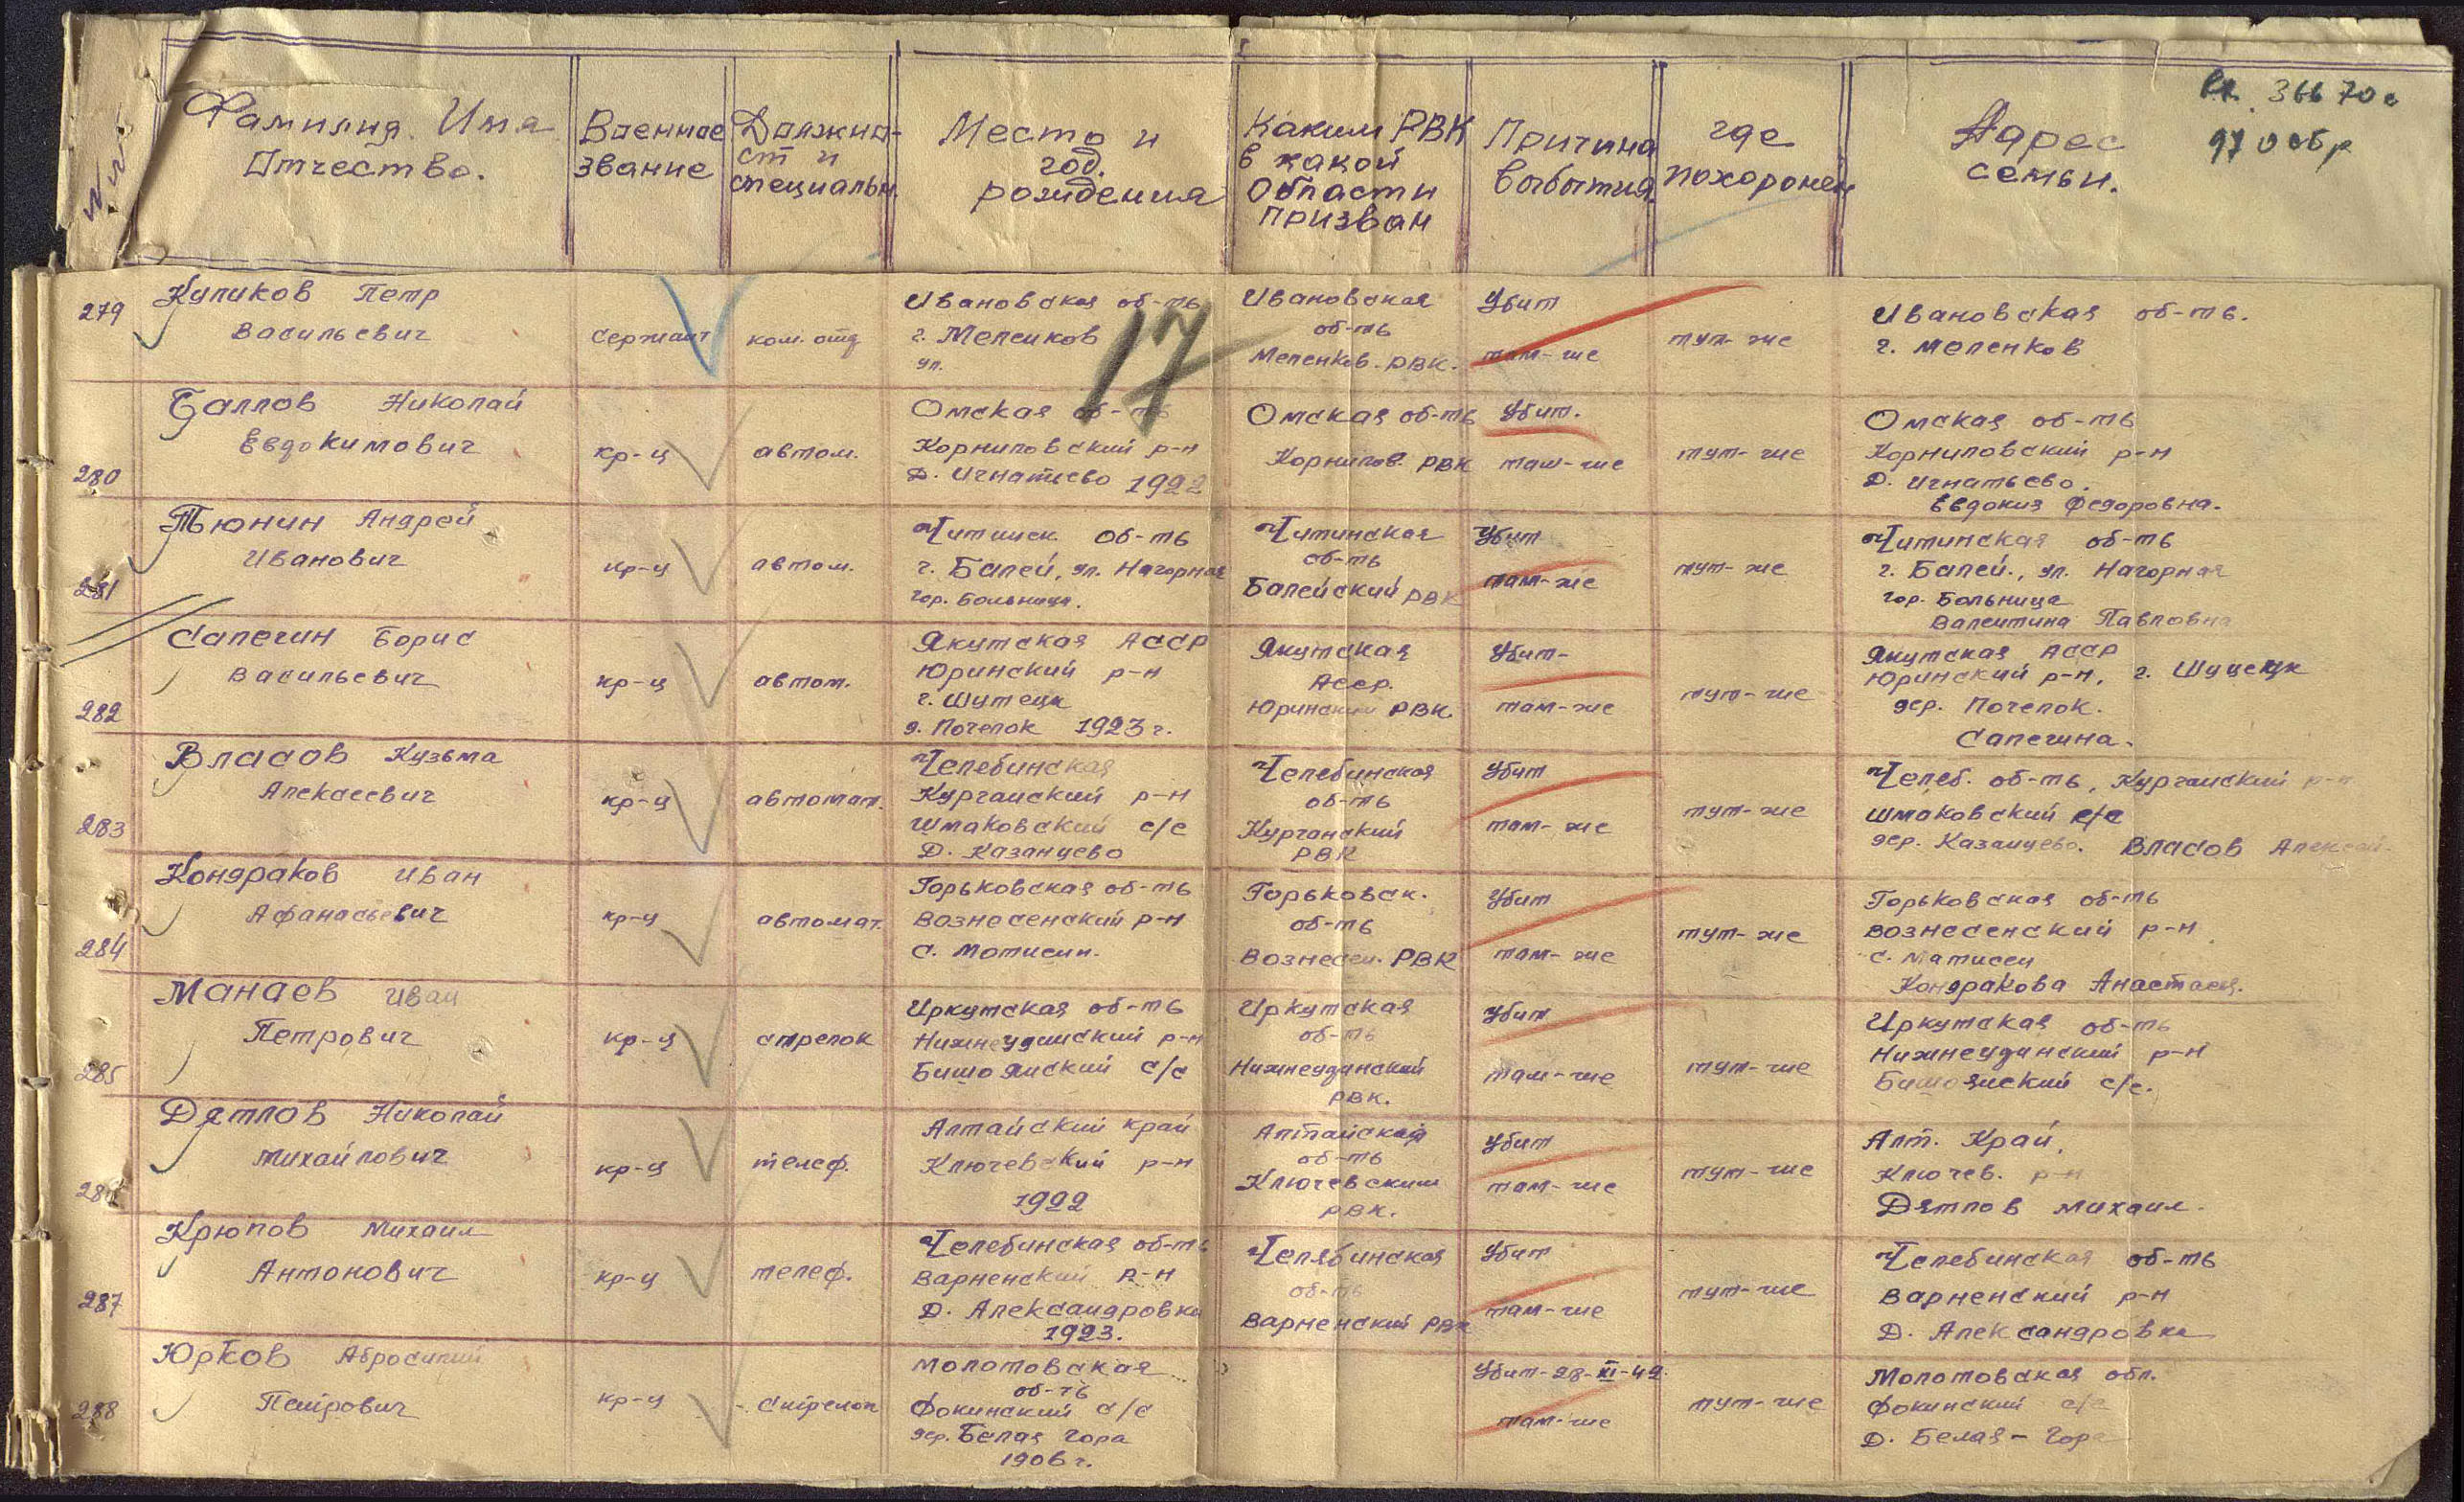 № №
Фамилия. Имя
Отчество.
Военное
звание
Должно-
ст и
специальн.
Место и
год.
рождения
Каким РВК
в какой
Области
призван
Причина
выбытия.
где
похоронен
Адрес
семьи.
36670с
17
279
Куликов Петр
Васильевич
сержант
ком. отд
Ивановская об-ть
г. Меленков
ул.
Ивановская
об-ть
Меленков. РВК.
Убит
там-же
тут-же
Ивановская об-ть.
г. Меленков
280
Баллов Николай
Евдокимович
кр-ц
автом.
Омская об-ть
Корниловский р-н
Д. Игнатьево 1922
Омская об-ть
Корнилов. РВК
Убит.
там-же
тут-же
Омская об-ть
Корниловский р-н
Д. Игнатьево.
Евдокия Федоровна.
281
Тюнин Андрей
Иванович
кр-ц
автом.
Читинск об-ть
г. Балей, ул. Нагорная
гор. Больница.
Читинская
об-ть
Балейский РВК
Убит
там-же
тут-же
Читинская об-ть
г. Балей., ул. Нагорная
гор. Больница
Валентина Павловна
282
Сапегин Борис
Васильевич
кр-ц
автом.
Якутская АССР
Юринский р-н
г.
д. Почепок 1923 г.
Якутская
Асср.
Юринский РВК.
Убит-
там-же
тут-же
Якутская АССР
Юринский р-н, г.
дер. Почепок.
Сапегина.
283
Власов Кузьма
Алексеевич
кр-ц
автомат.
Челебинская
Курганский р-н
Шмаковский с/с
Д. Казанцево
Челебинская
об-ть
Курганский
РВК
Убит
там-же
тут-же
Челеб. об-ть, Курганский р-н
Шмаковский с/с
дер. Казанцево. Власов Алексей
284
Кондраков Иван
Афанасьевич
кр-ц
автомат.
Горьковская об-ть
Вознесенский р-н
с. Мотисин.
Горьковск.
об-ть
Вознесен. РВК
Убит
там-же
тут-же
Горьковская об-ть
Вознесенский р-н
с. Матисен
Кондракова Анастасия.
285
Манаев Иван
Петрович
кр-ц
стрелок
Иркутская об-ть
Нижнеудинский р-н
с/с
Иркутская
об-ть
Нижнеудинский
РВК.
Убит
там-же
тут-же
Иркутская об-ть
Нижнеудинский р-н
с/с.
286
Дятлов Николай
Михайлович
кр-ц
телеф.
Алтайский край
Ключевский р-н
1922
Алтайской
об-ть
Ключевским
РВК.
Убит
там-же
тут-же
Алт. Край,
Ключев. р-н
Дятлов Михаил.
287
Крюпов Михаил
Антонович
кр-ц
телеф.
Челебинская об-ть
Варненский р-н
Д. Александровка
1923.
Челябинская
об-ть
Варненский РВК
Убит
там-же
тут-же
Челебинская об-ть
Варненский р-н
Д. Александровка
288
Юрков
Петрович
кр-ц
Стрелок
Молотовская
об-ть
Фокинский с/с
дер. Белая Гора
1906 г.
Убит-28-XI-42
там-же
тут-же
Молотовская обл.
Фокинский с/с
Д. Белая-Гора